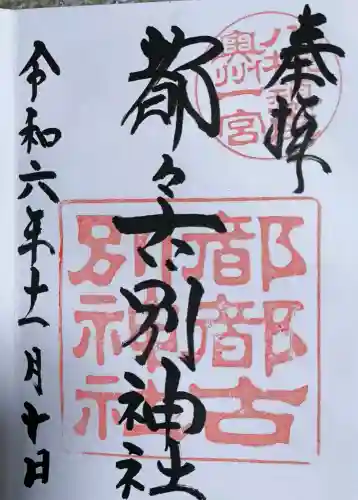 奉拝
都々古別神社
令和六年十一月十日
奥州一宮
都都古
別神社